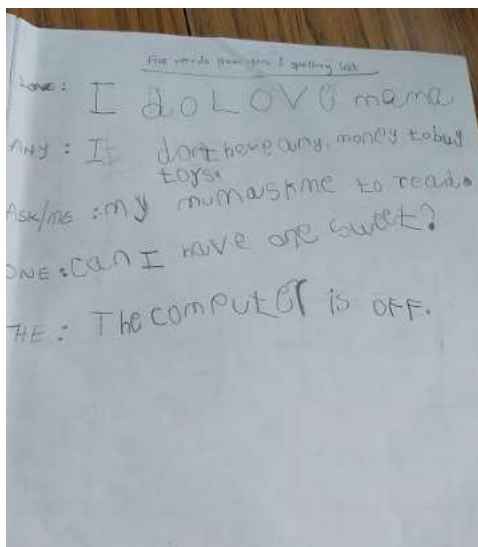 Five words from your spelling list
LOVE: I do LOVE mama
ANY: I don't have any money to buy
toys.
ASK/ME: my mum ask me to read.
ONE: Can I have one sweet?
THE: The computer is OFF.